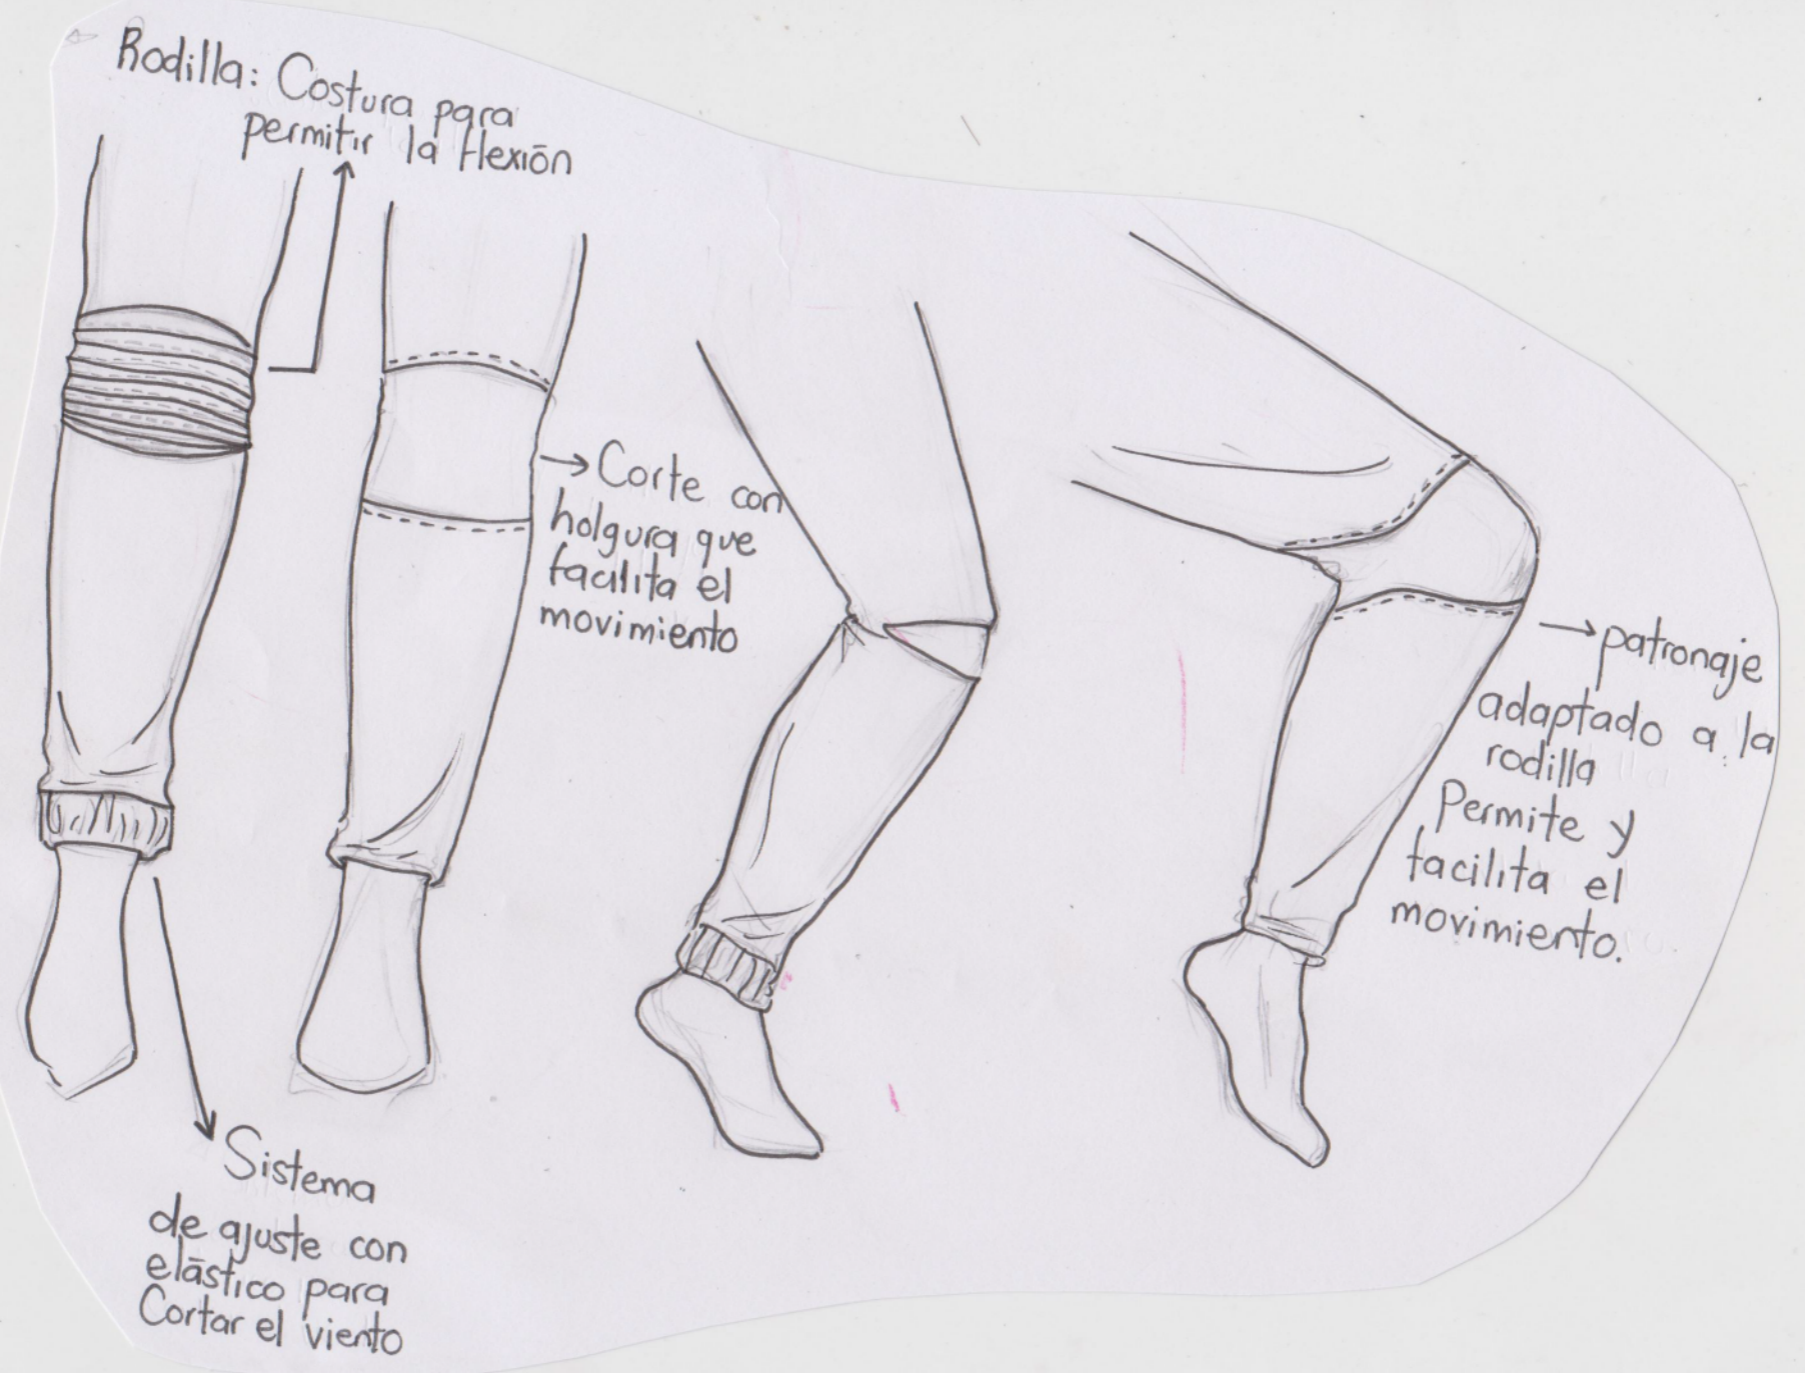 Rodilla: Costura para
permitir la flexión
→ Corte con
holgura que
facilita el
movimiento
→ patronaje
adaptado a la
rodilla
Permite y
facilita el
movimiento.
Sistema
de ajuste con
elástico para
Cortar el viento